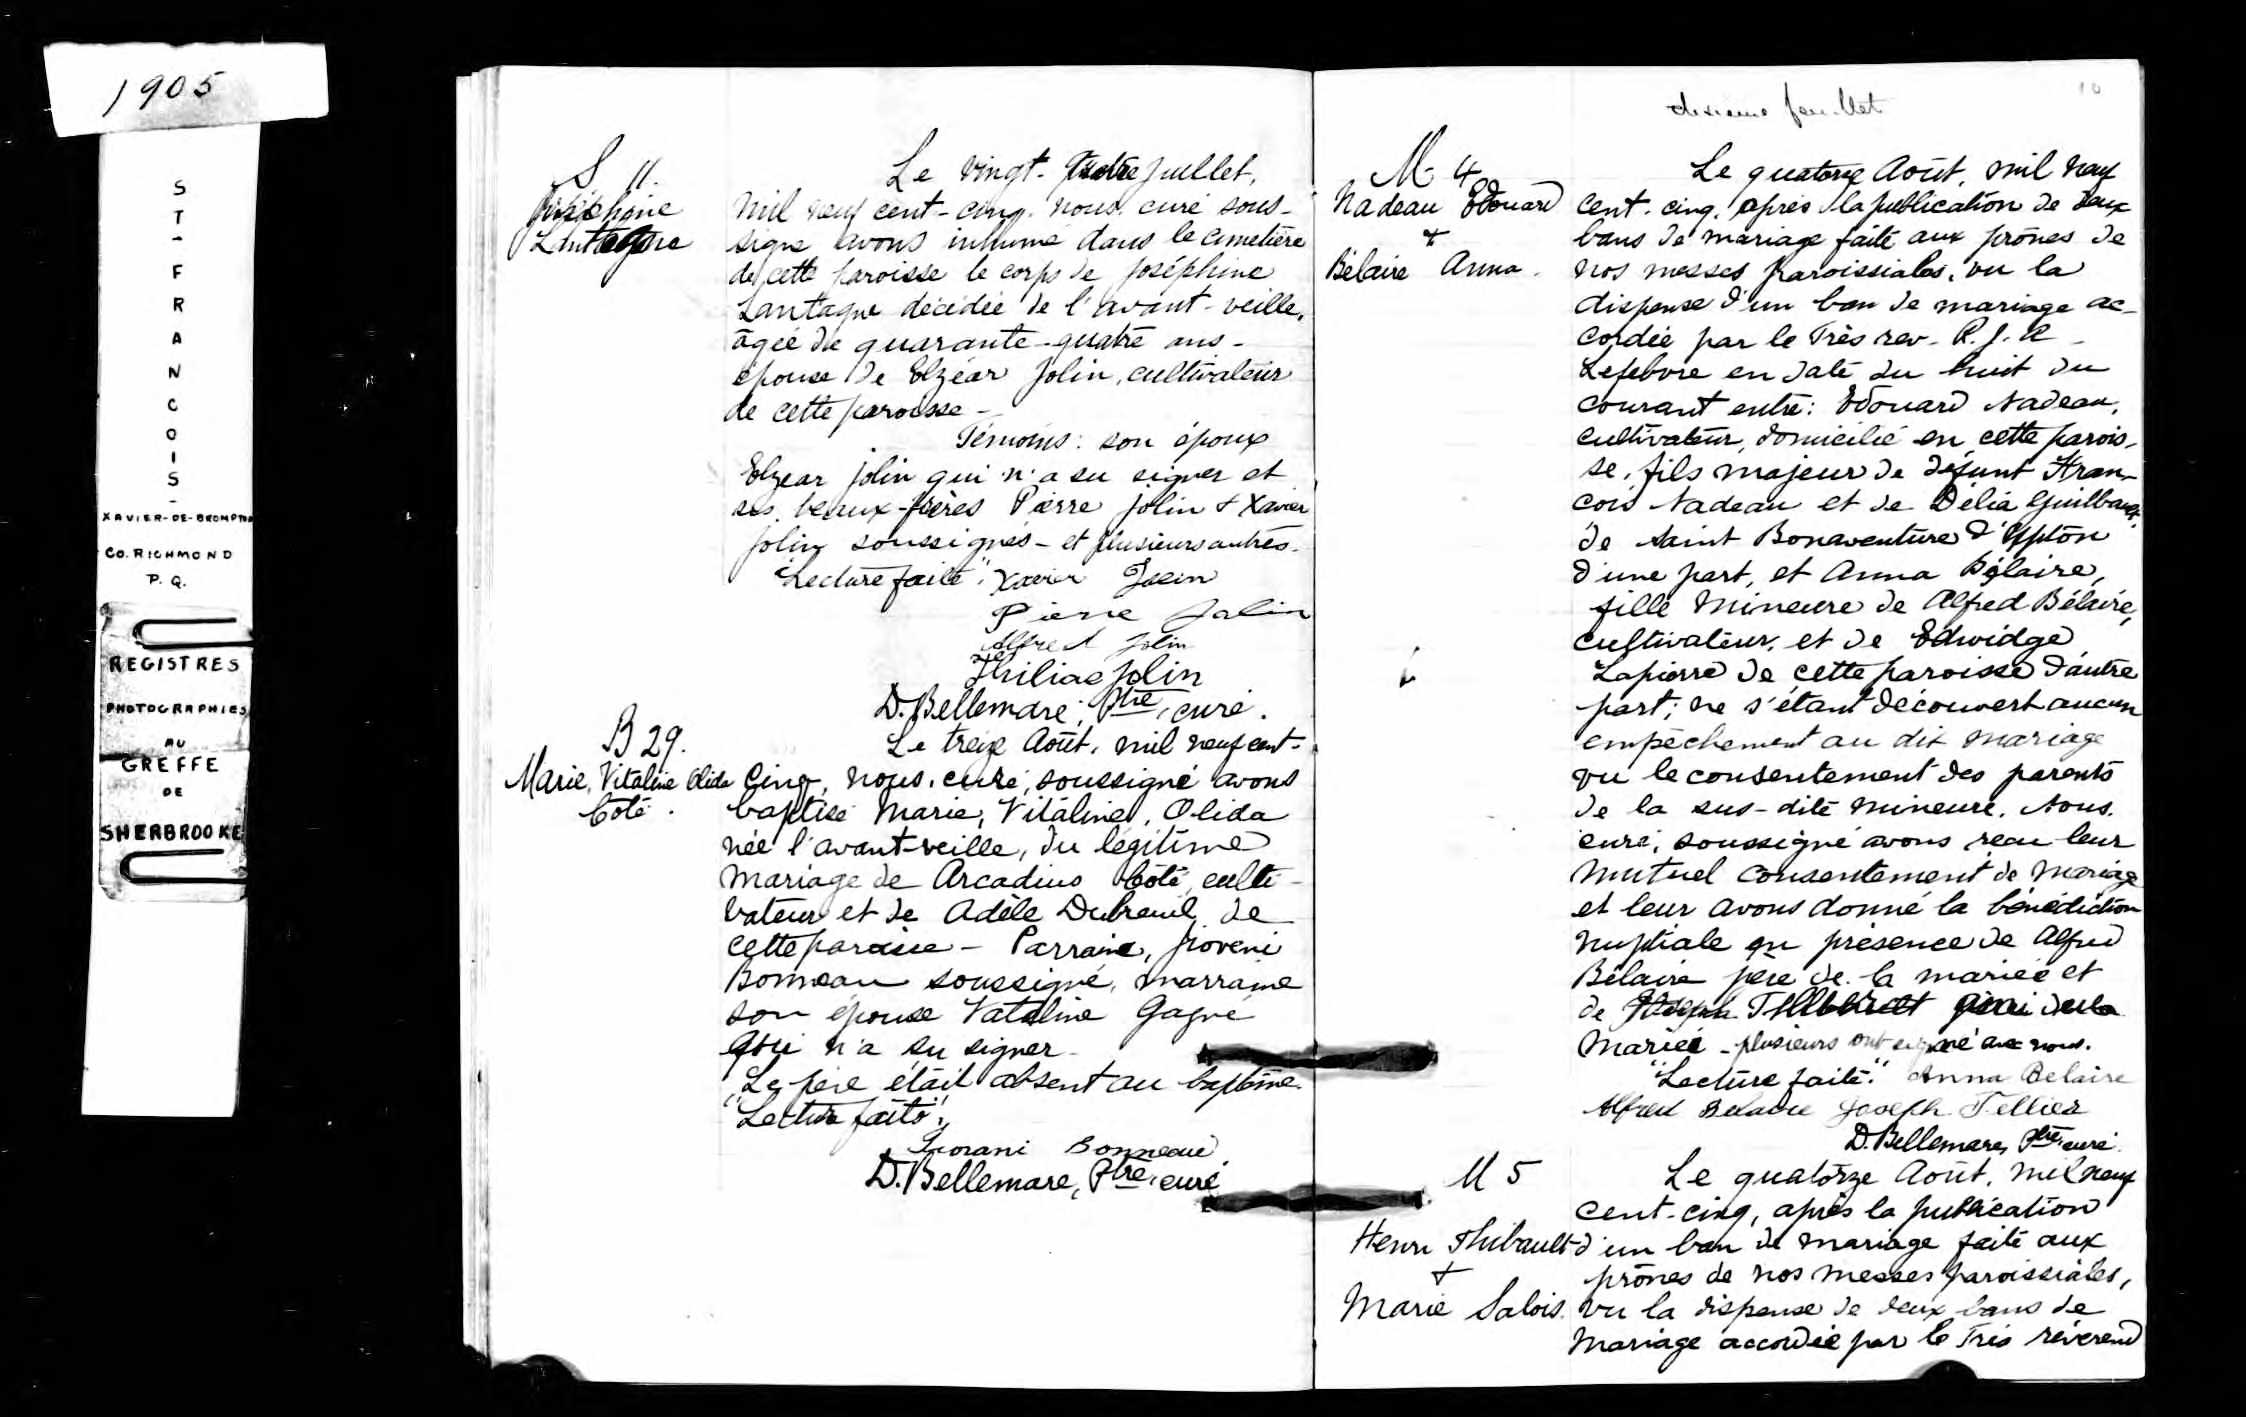 1905
ST-FRANCOIS-
XAVIER-DE-BROMPTON
CO. RICHMOND
P. Q.
REGISTRES
PHOTOGRAPHIES
AU
GREFFE
DE
SHERBROOKE
S 11.
Joséphine
Lantagne
Le vingt-quatre juillet,
mil neuf cent-cinq, nous, curé sous-
signé avons inhumé dans le cimetière
de cette paroisse le corps de Joséphine
Lantagne décédée de l'avant-veille,
âgée de quarante-quatre ans -
épouse de Elzéar Jolin, cultivateur
de cette paroisse -
Témoins: son époux
Elzear Jolin qui n'a su signer et
ses beaux-frères Pierre Jolin & Xavier
Jolin soussignés - et plusieurs autres.
"Lecture faite". Xavier Jolin
Pierre Jolin
Alfred Jolin
Jolin
D. Bellemare, Ptre, curé.
B 29.
Marie, Vitaline Olida
Coté.
Le treize Août, mil neuf cent-
cinq, nous, curé, soussigné avons
baptisé Marie, Vitaline, Olida
née l'avant-veille, du légitime
mariage de Arcadius Côté, culti-
vateur et de Adèle Dubreuil de
cette paroisse - Parrain,
Bonneau soussigné, marraine
son épouse Vitaline Gagné
qui n'a su signer -
Le père était absent au baptême.
"Lecture faite".
Bonneau
D. Bellemare, Ptre, curé
dixième feuillet
10
M 4
Nadeau Edouard
+
Bélaire Anna.
Le quatorze Août, mil neuf
cent-cinq, après la publication de deux
bans de mariage faite aux prônes de
nos messes paroissiales, vu la
dispense d'un ban de mariage ac-
cordée par le Très rev. P. J. A
Lefebvre en date du huit du
courant entre: Edouard Nadeau,
cultivateur, domicilié en cette parois-
se, fils majeur de défunt Fran-
cois Nadeau et de Délia Guilbault,
de Saint Bonaventure d'Upton
d'une part, et Anna Bélaire,
fille mineure de Alfred Bélaire,
cultivateur, et de Edwidge
Lapierre de cette paroisse d'autre
part; ne s'étant découvert aucun
empêchement au dit mariage
vu le consentement des parents
de la sus-dite mineure. Nous,
curé, soussigné avons reçu leur
mutuel consentement de mariage
et leur avons donné la bénédiction
nuptiale en présence de Alfred
Bélaire père de la mariée et
de Joseph de la
mariée - plusieurs ont signé avec nous.
"Lecture faite." Anna Belaire
Alfred Belaire Joseph Tellier
D. Bellemare, Ptre, curé.
M 5
Henri Thibault
+
Marie Salois.
Le quatorze Août, mil neuf
cent-cinq, après la publication
d'un ban de mariage faite aux
prônes de nos messes paroissiales,
vu la dispense de deux bans de
mariage accordée par le Très révérend